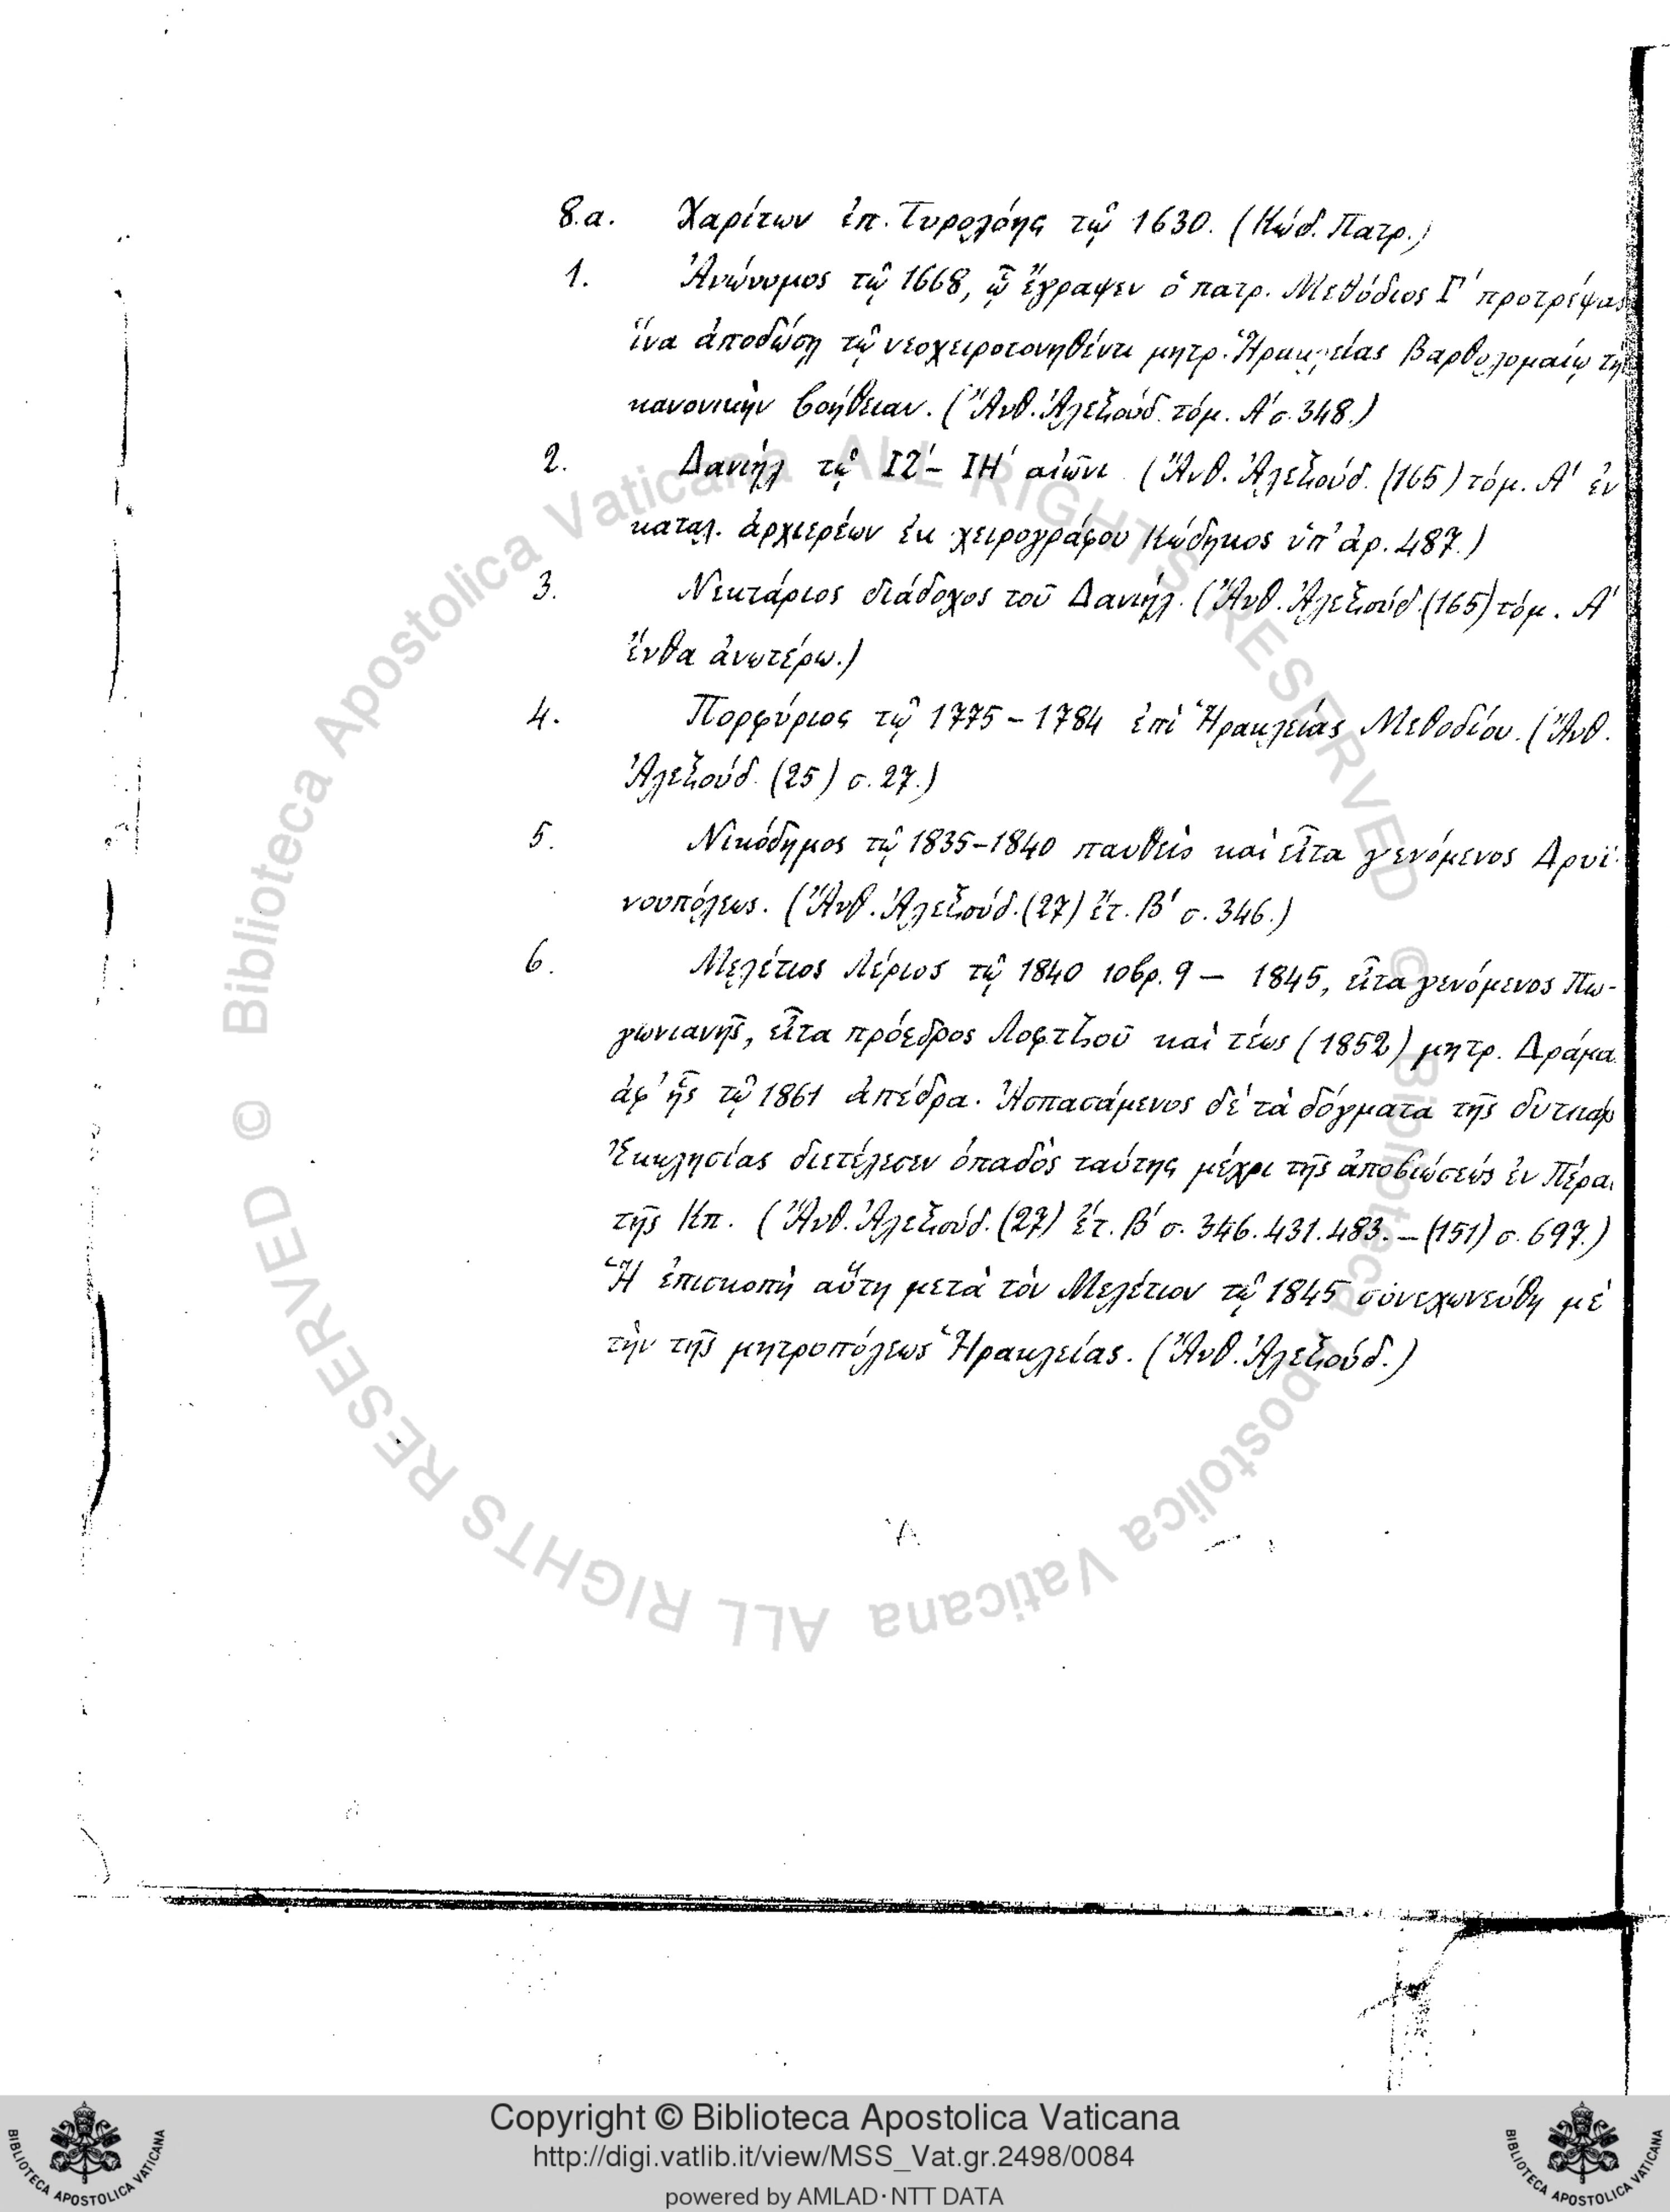 8.α. Χαρίτων ἐπ. Τυρολόης τῷ 1630. (Κώδ. Πατρ.)
1. Ἀνώνυμος τῷ 1668, ᾧ ἔγραψεν ὁ πατρ. Μεθόδιος Γ' προτρέψας
ἵνα ἀποδώσῃ τῷ νεοχειροτονηθέντι μητρ. Ἡρακλείας Βαρθολομαίῳ τὴν
κανονικὴν βοήθειαν. (Ἄνθ. Ἀλεξούδ. τόμ. Α' σ. 348.)
2. Δανιὴλ τῷ ΙΖ' – ΙΗ' αἰῶνι (Ἄνθ. Ἀλεξούδ. (165) τόμ. Α' ἐν
καταλ. ἀρχιερέων ἐκ χειρογράφου Κώδηκος ὑπ' ἀρ. 487.)
3. Νεκτάριος διάδοχος τοῦ Δανιήλ. (Ἄνθ. Ἀλεξούδ. (165) τόμ. Α'
ἔνθα ἀνωτέρω.)
4. Πορφύριος τῷ 1775 – 1784 ἐπὶ Ἡρακλείας Μεθοδίου. (Ἄνθ.
Ἀλεξούδ. (25) σ. 27.)
5. Νικόδημος τῷ 1835–1840 παυθεὶς καὶ εἶτα γενόμενος Δρυϊ-
νουπόλεως. (Ἄνθ. Ἀλεξούδ. (27) ἔτ. Β' σ. 346.)
6. Μελέτιος Λέριος τῷ 1840 10βρ. 9 – 1845, εἶτα γενόμενος Πω-
γωνιανῆς, εἶτα πρόεδρος Λοφτζοῦ καὶ τέως (1852) μητρ. Δράμα
ἀφ' ἧς τῷ 1861 ἀπέδρα. Ἀσπασάμενος δὲ τὰ δόγματα τῆς δυτικῆς
Ἐκκλησίας διετέλεσεν ὀπαδὸς ταύτης μέχρι τῆς ἀποβιώσεώς ἐν Πέρα
τῆς Κπ. (Ἄνθ. Ἀλεξούδ. (27) ἔτ. Β' σ. 346. 431. 483. – (151) σ. 697.)
Ἡ ἐπισκοπὴ αὕτη μετὰ τὸν Μελέτιον τῷ 1845 συνεχωνεύθη μὲ
τὴν τῆς μητροπόλεως Ἡρακλείας. (Ἄνθ. Ἀλεξούδ.)
© Biblioteca Apostolica Vaticana ALL RIGHTS RESERVED
© Biblioteca Apostolica Vaticana ALL RIGHTS RESERVED
Copyright © Biblioteca Apostolica Vaticana
http://digi.vatlib.it/view/MSS_Vat.gr.2498/0084
powered by AMLAD·NTT DATA
BIBLIOTECA APOSTOLICA VATICANA
BIBLIOTECA APOSTOLICA VATICANA